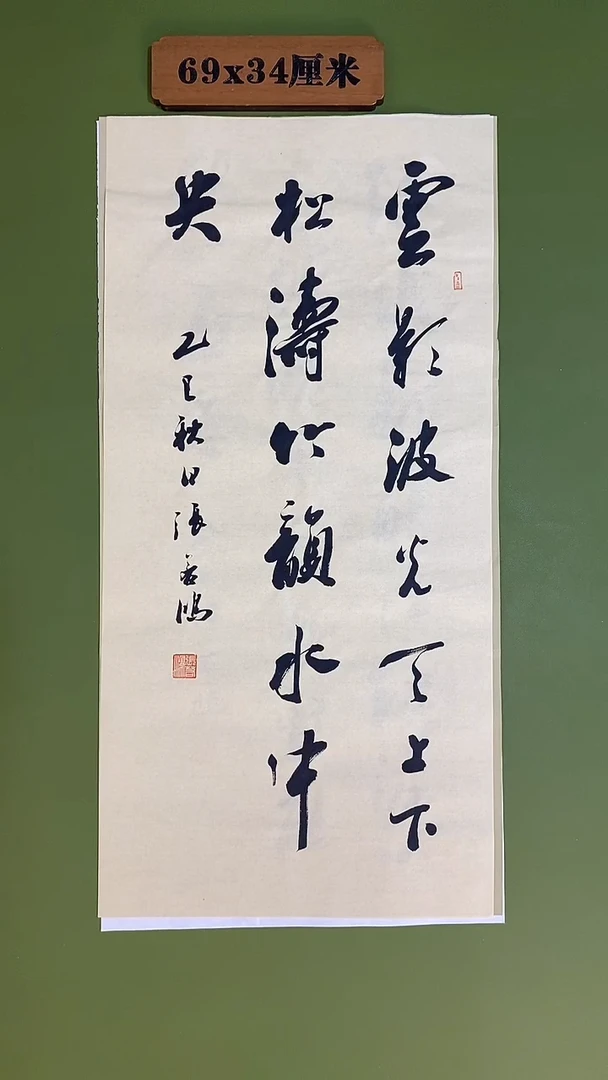 69x34厘米
雲影波光天上下
松濤竹韻水中
央
乙巳秋日張鴻